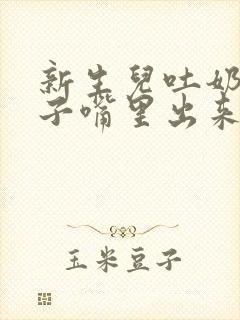 新生兒吐奶
子嘴里出来
玉米豆子